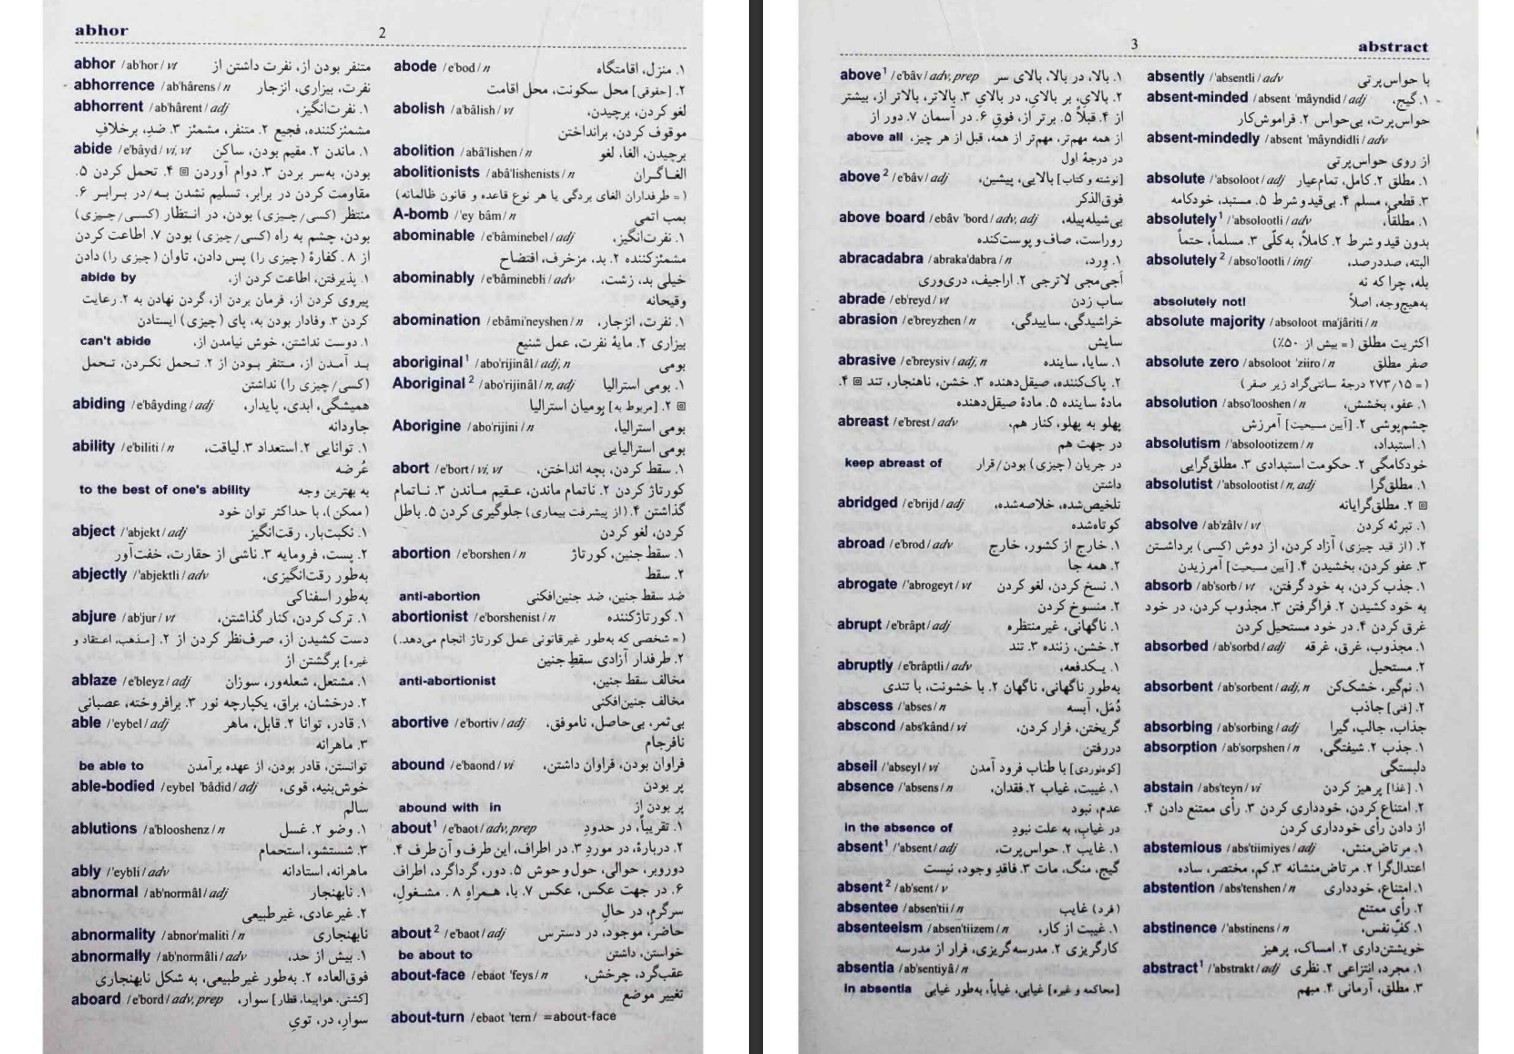 abhor
2
abhor /ab'hor/ vt متنفر بودن از، نفرت داشتن از
abhorrence /ab'hârens/ n نفرت، بیزاری، انزجار
abhorrent /ab'hârent/ adj ۱. نفرت‌انگیز،
مشمئزکننده، فجیع ۲. متنفر، مشمئز ۳. ضدِ، برخلافِ
abide /e'bâyd/ vi, vt ۱. ماندن ۲. مقیم بودن، ساکن
بودن، به‌سر بردن ۳. دوام آوردن ▣ ۴. تحمل کردن ۵.
مقاومت کردن در برابر، تسلیم نشدن به/در برابر ۶.
منتظر (کسی/چیزی) بودن، در انتظار (کسی/چیزی)
بودن، چشم به راه (کسی/چیزی) بودن ۷. اطاعت کردن
از ۸. کفارهٔ (چیزی را) پس دادن، تاوان (چیزی را) دادن
abide by ۱. پذیرفتن، اطاعت کردن از،
پیروی کردن از، فرمان بردن از، گردن نهادن به ۲. رعایت
کردن ۳. وفادار بودن به، پای (چیزی) ایستادن
can't abide ۱. دوست نداشتن، خوش نیامدن از،
بد آمدن از، متنفر بودن از ۲. تحمل نکردن، تحمل
(کسی/چیزی را) نداشتن
abiding /e'bâyding/ adj همیشگی، ابدی، پایدار،
جاودانه
ability /e'biliti/ n ۱. توانایی ۲. استعداد ۳. لیاقت،
عُرضه
to the best of one's ability به بهترین وجه
(ممکن)، با حداکثر توان خود
abject /'abjekt/ adj ۱. نکبت‌بار، رقت‌انگیز
۲. پست، فرومایه ۳. ناشی از حقارت، خفت‌آور
abjectly /'abjektli/ adv به‌طور رقت‌انگیزی،
به‌طور اسفناکی
abjure /ab'jur/ vt ۱. ترک کردن، کنار گذاشتن،
دست کشیدن از، صرف‌نظر کردن از ۲. [مذهب، اعتقاد و
غیره] برگشتن از
ablaze /e'bleyz/ adj ۱. مشتعل، شعله‌ور، سوزان
۲. درخشان، براق، یکپارچه نور ۳. برافروخته، عصبانی
able /'eybel/ adj ۱. قادر، توانا ۲. قابل، ماهر
۳. ماهرانه
be able to توانستن، قادر بودن، از عهده برآمدن
able-bodied /eybel 'bâdid/ adj خوش‌بنیه، قوی،
سالم
ablutions /a'blooshenz/ n ۱. وضو ۲. غسل
۳. شستشو، استحمام
ably /'eybli/ adv ماهرانه، استادانه
abnormal /ab'normâl/ adj ۱. نابهنجار
۲. غیرعادی، غیرطبیعی
abnormality /abnor'maliti/ n نابهنجاری
abnormally /ab'normâli/ adv ۱. بیش از حد،
فوق‌العاده ۲. به‌طور غیرطبیعی، به شکل نابهنجاری
aboard /e'bord/ adv, prep [کشتی، هواپیما، قطار] سوارِ،
سوارِ، در، توی
abode /e'bod/ n ۱. منزل، اقامتگاه
۲. [حقوقی] محل سکونت، محل اقامت
abolish /a'bâlish/ vt لغو کردن، برچیدن،
موقوف کردن، برانداختن
abolition /abâ'lishen/ n برچیدن، الغا، لغو
abolitionists /abâ'lishenists/ n الغاگران
(= طرفداران الغای بردگی یا هر نوع قاعده و قانون ظالمانه)
A-bomb /'ey bâm/ n بمب اتمی
abominable /e'bâminebel/ adj ۱. نفرت‌انگیز،
مشمئزکننده ۲. بد، مزخرف، افتضاح
abominably /e'bâminebli/ adv خیلی بد، زشت،
وقیحانه
abomination /ebâmi'neyshen/ n ۱. نفرت، انزجار،
بیزاری ۲. مایهٔ نفرت، عمل شنیع
aboriginal¹ /abo'rijinâl/ adj, n بومی
Aboriginal² /abo'rijinâl/ n, adj ۱. بومی استرالیا
▣ ۲. [مربوط به] بومیان استرالیا
Aborigine /abo'rijini/ n بومی استرالیا،
بومی استرالیایی
abort /e'bort/ vi, vt ۱. سقط کردن، بچه انداختن،
کورتاژ کردن ۲. ناتمام ماندن، عقیم ماندن ۳. ناتمام
گذاشتن ۴. (از پیشرفت بیماری) جلوگیری کردن ۵. باطل
کردن، لغو کردن
abortion /e'borshen/ n ۱. سقط جنین، کورتاژ
۲. سقط
anti-abortion ضد سقط جنین، ضد جنین‌افکنی
abortionist /e'borshenist/ n ۱. کورتاژکننده
(= شخصی که به‌طور غیرقانونی عمل کورتاژ انجام می‌دهد.)
۲. طرفدار آزادی سقطِ جنین
anti-abortionist مخالف سقط جنین،
مخالف جنین‌افکنی
abortive /e'bortiv/ adj بی‌ثمر، بی‌حاصل، ناموفق،
نافرجام
abound /e'baond/ vi فراوان بودن، فراوان داشتن،
پر بودن
abound with in پر بودن از
about¹ /e'baot/ adv, prep ۱. تقریباً، در حدودِ
۲. دربارهٔ، در موردِ ۳. در اطراف، این طرف و آن طرف ۴.
دوروبرِ، حوالی، حول و حوش ۵. دور، گرداگرد، اطراف
۶. در جهت عکس، عکس ۷. با، همراهِ ۸. مشغولِ،
سرگرمِ، در حالِ
about² /e'baot/ adj حاضر، موجود، در دسترس
be about to خواستن، داشتن
about-face /ebaot 'feys/ n عقب‌گرد، چرخش،
تغییر موضع
about-turn /ebaot 'tern/ =about-face
3
abstract
above¹ /e'bâv/ adv, prep ۱. بالا، در بالا، بالای سر
۲. بالایِ، بر بالایِ، در بالایِ ۳. بالاتر، بالاتر از، بیشتر
از ۴. قبلاً ۵. برتر از، فوقِ ۶. در آسمان ۷. دور از
above all از همه مهم‌تر، مهم‌تر از همه، قبل از هر چیز،
در درجهٔ اول
above² /e'bâv/ adj [نوشته و کتاب] بالایی، پیشین،
فوق‌الذکر
above board /ebâv 'bord/ adv, adj بی‌شیله‌پیله،
روراست، صاف و پوست‌کنده
abracadabra /abraka'dabra/ n ۱. وِرد،
اَجی‌مجی لاترجی ۲. اراجیف، دری‌وری
abrade /eb'reyd/ vt ساب زدن
abrasion /e'breyzhen/ n خراشیدگی، ساییدگی،
سایش
abrasive /e'breysiv/ adj, n ۱. سایا، ساینده
۲. پاک‌کننده، صیقل‌دهنده ۳. خشن، ناهنجار، تند ▣ ۴.
مادهٔ ساینده ۵. مادهٔ صیقل‌دهنده
abreast /e'brest/ adv پهلو به پهلو، کنار هم،
در جهت هم
keep abreast of در جریان (چیزی) بودن/قرار
داشتن
abridged /e'brijd/ adj تلخیص‌شده، خلاصه‌شده،
کوتاه‌شده
abroad /e'brod/ adv ۱. خارج از کشور، خارج
۲. همه جا
abrogate /'abrogeyt/ vt ۱. نسخ کردن، لغو کردن
۲. منسوخ کردن
abrupt /e'brâpt/ adj ۱. ناگهانی، غیرمنتظره
۲. خشن، زننده ۳. تند
abruptly /e'brâptli/ adv ۱. یکدفعه،
به‌طور ناگهانی، ناگهان ۲. با خشونت، با تندی
abscess /'abses/ n دُمَل، آبسه
abscond /abs'kând/ vi گریختن، فرار کردن،
دررفتن
abseil /'abseyl/ vi [کوه‌نوردی] با طناب فرود آمدن
absence /'absens/ n ۱. غیبت، غیاب ۲. فقدان،
عدم، نبود
in the absence of در غیابِ، به علت نبودِ
absent¹ /'absent/ adj ۱. غایب ۲. حواس‌پرت،
گیج، منگ، مات ۳. فاقدِ وجود، نیست
absent² /ab'sent/ v
absentee /absen'tii/ n (فرد) غایب
absenteeism /absen'tiizem/ n ۱. غیبت از کار،
کارگریزی ۲. مدرسه‌گریزی، فرار از مدرسه
absentia /ab'sentiyâ/ n
in absentia [محاکمه و غیره] غیابی، غیاباً، به‌طور غیابی
absently /'absentli/ adv با حواس‌پرتی
absent-minded /absent 'mâyndid/ adj ۱. گیج،
حواس‌پرت، بی‌حواس ۲. فراموش‌کار
absent-mindedly /absent 'mâyndidli/ adv
از روی حواس‌پرتی
absolute /'absoloot/ adj ۱. مطلق ۲. کامل، تمام‌عیار
۳. قطعی، مسلم ۴. بی‌قیدوشرط ۵. مستبد، خودکامه
absolutely¹ /'absolootli/ adv ۱. مطلقاً،
بدون قیدوشرط ۲. کاملاً، به‌کلّی ۳. مسلماً، حتماً
absolutely² /abso'lootli/ intj البته، صددرصد،
بله، چرا که نه
absolutely not! به‌هیچ‌وجه، اصلاً
absolute majority /absoloot ma'jâriti/ n
اکثریت مطلق (= بیش از ۵۰٪)
absolute zero /absoloot 'ziiro/ n صفر مطلق
(= ۲۷۳/۱۵ درجهٔ سانتی‌گراد زیر صفر)
absolution /abso'looshen/ n ۱. عفو، بخشش،
چشم‌پوشی ۲. [آیین مسیحیت] آمرزش
absolutism /'absolootizem/ n ۱. استبداد،
خودکامگی ۲. حکومت استبدادی ۳. مطلق‌گرایی
absolutist /'absolootist/ n, adj ۱. مطلق‌گرا
▣ ۲. مطلق‌گرایانه
absolve /ab'zâlv/ vt ۱. تبرئه کردن
۲. (از قید چیزی) آزاد کردن، از دوش (کسی) برداشتن
۳. عفو کردن، بخشیدن ۴. [آیین مسیحیت] آمرزیدن
absorb /ab'sorb/ vt ۱. جذب کردن، به خود گرفتن،
به خود کشیدن ۲. فراگرفتن ۳. مجذوب کردن، در خود
غرق کردن ۴. در خود مستحیل کردن
absorbed /ab'sorbd/ adj ۱. مجذوب، غرق، غرقه
۲. مستحیل
absorbent /ab'sorbent/ adj, n ۱. نم‌گیر، خشک‌کن
۲. [فنی] جاذب
absorbing /ab'sorbing/ adj جذاب، جالب، گیرا
absorption /ab'sorpshen/ n ۱. جذب ۲. شیفتگی،
دلبستگی
abstain /abs'teyn/ vi ۱. [غذا] پرهیز کردن
۲. امتناع کردن، خودداری کردن ۳. رأی ممتنع دادن ۴.
از دادن رأی خودداری کردن
abstemious /abs'tiimiyes/ adj ۱. مرتاض‌منش،
اعتدال‌گرا ۲. مرتاض‌منشانه ۳. کم، مختصر، ساده
abstention /abs'tenshen/ n ۱. امتناع، خودداری
۲. رأی ممتنع
abstinence /'abstinens/ n ۱. کفّ نفس،
خویشتن‌داری ۲. امساک، پرهیز
abstract¹ /'abstrakt/ adj ۱. مجرد، انتزاعی ۲. نظری
۳. مطلق، آرمانی ۴. مبهم